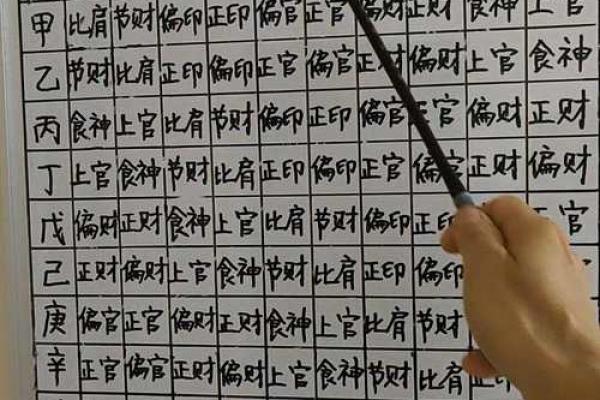 甲 比肩 节财 偏印 正印 偏官 正官 偏财 正财 食神 上官
乙 节财 比肩 正印 偏印 正官 偏官 正财 偏财 上官 食神
丙 食神 上官 比肩 节财 偏印 正印 偏官 正官 偏财 正财
丁 上官 食神 节财 比肩 正印 偏印 正官 偏官 正财 偏财
戊 偏财 正财 食神 上官 比肩 节财 偏印 正印 官
己 正财 偏财 上官 食神 节财 比肩 正印 偏印
庚 偏官 正官 偏财 正财 食神 上官 比肩 节财
辛 正官 偏官 正财 偏财 上官 食神 节财 比肩